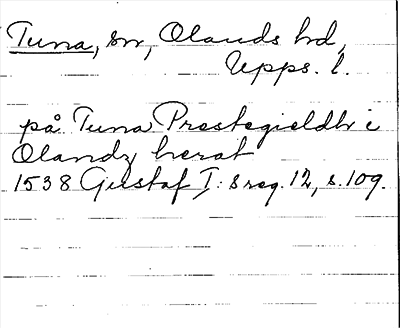 Tuna, sn, Olands hd,
Upps. l.
på Tuna Prestegieldh i
Olandz herat
1538 Gustaf I: s reg. 12, s. 109.